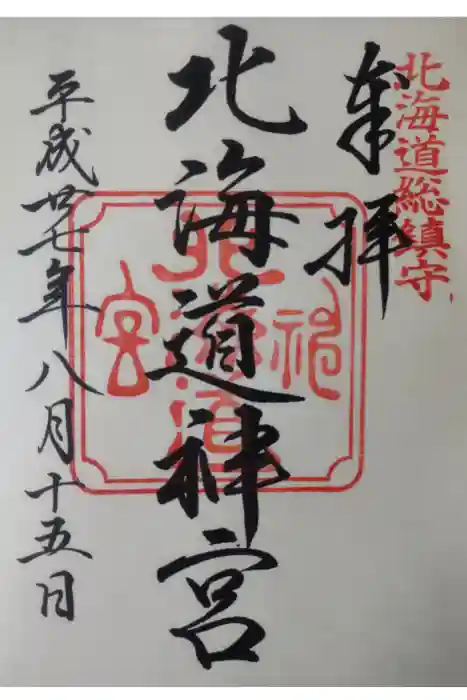 北海道総鎮守
奉拝
北海道神宮
神
北海道
宮
平成廿七年八月十五日